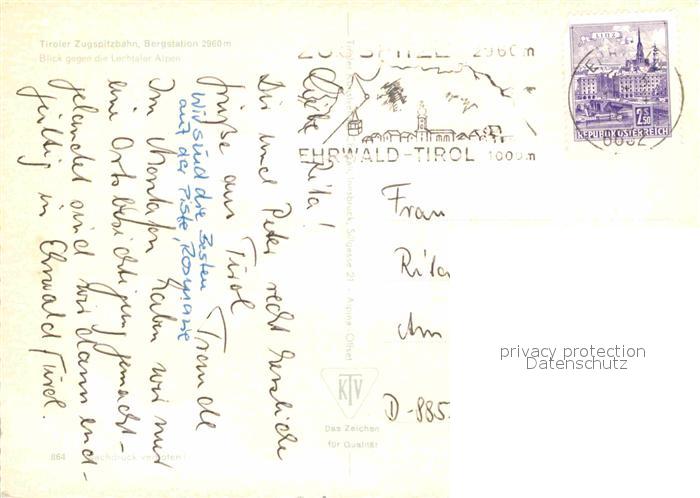 Tiroler Zugspitzbahn, Bergstation 2960 m
Blick gegen die Lechtaler Alpen
Liebe Rita!
Dir und Peter recht herzliche
Grüße aus Tirol
Im Montafon haben wir nur
eine Ortsbesichtigung gemacht -
gelandet sind wir dann end-
gültig in Ehrwald Tirol.
Wir sind die Besten
auf der Piste, Rosmarie
Traude
864
Nachdruck verboten!
Innsbruck, Sillgasse 21 - Alpina-Offset
KTV
Das Zeichen
für Qualität
ZUGSPITZE 2960m
EHRWALD-TIROL 1000m
LINZ
2.50
REPUBLIK ÖSTERREICH
6632
Frau
Rita
Am
D-885
privacy protection
Datenschutz